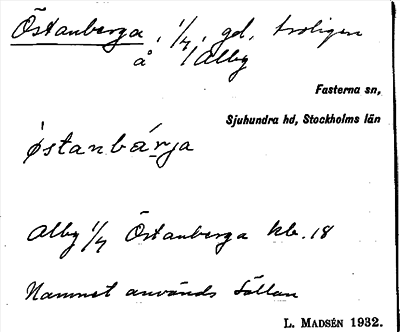 Östanberga, 1/4, gd, troligen
å Alby
Fasterna sn,
Sjuhundra hd, Stockholms län
østanbárja
Alby 1/4 Östanberga kb. 18
Namnet används sällan
L. MADSÉN 1932.